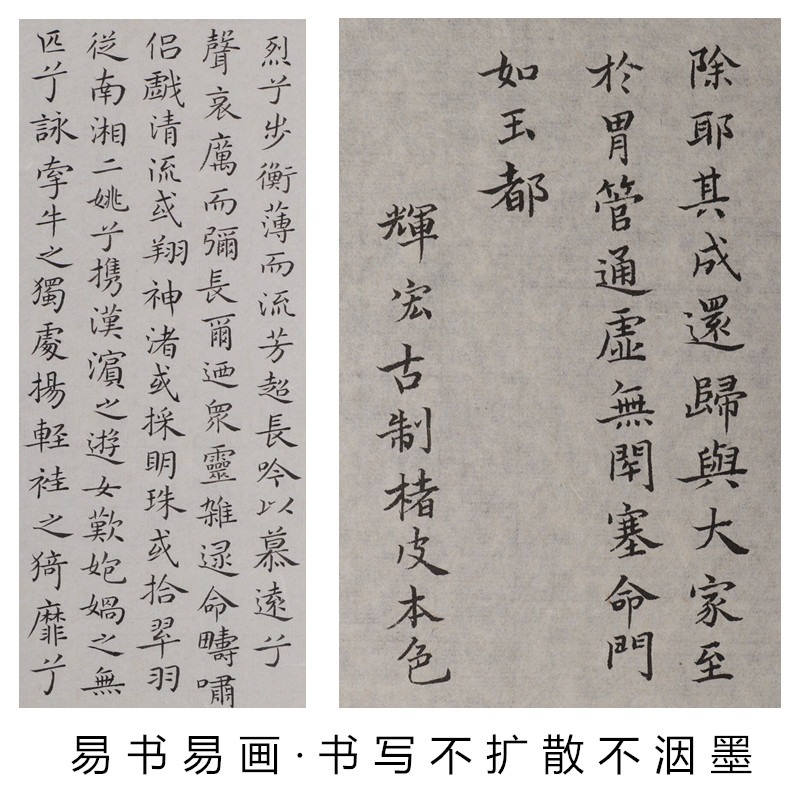 烈兮步衡薄而流芳超長吟以慕遠兮
聲哀厲而彌長爾迺眾靈雜遝命疇嘯
侶戲清流或翔神渚或採明珠或拾翠羽
從南湘二姚兮携漢濱之遊女歎匏媧之無
匹兮詠牽牛之獨處揚輕袿之猗靡兮
除耶其成還歸與大家至
於胃管通虛無閉塞命門
如玉都
輝宏古制楮皮本色
易书易画·书写不扩散不洇墨